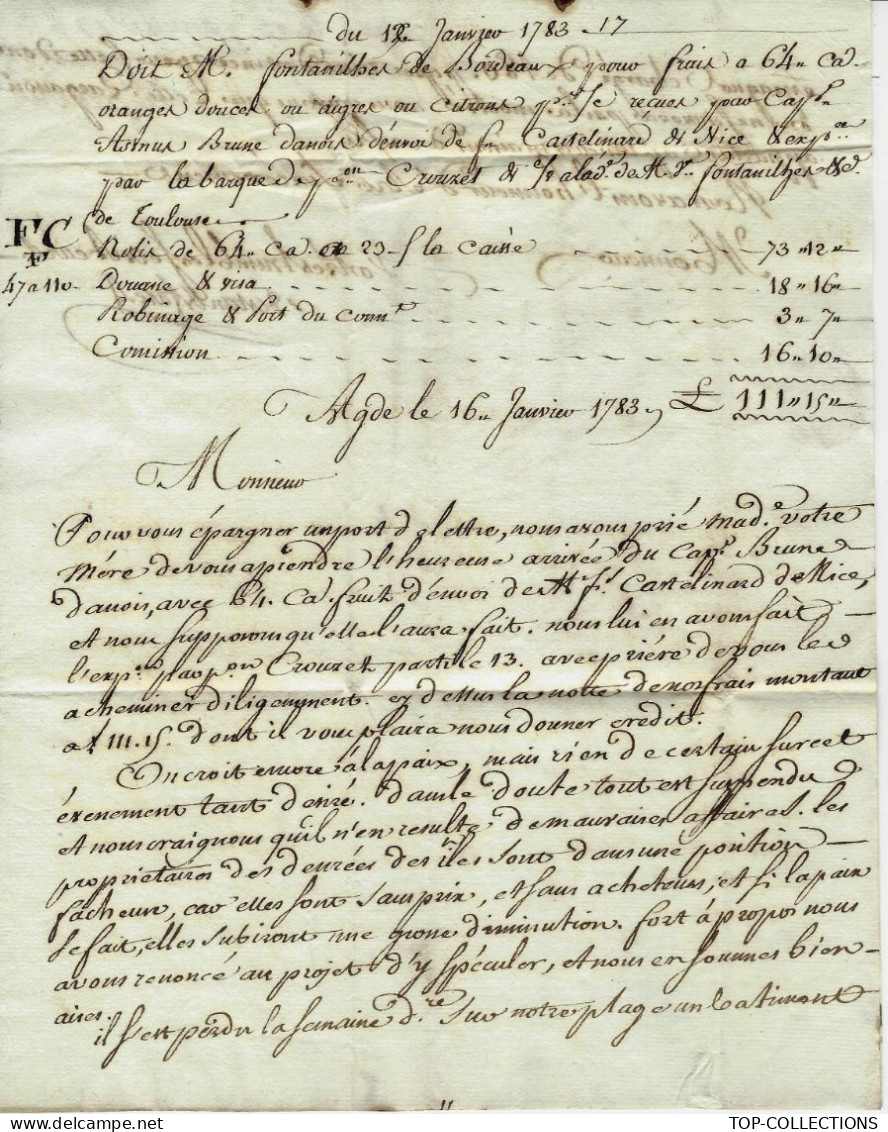 du 12 Janvier 1783 17
Doit M. fontanilhes de Bordeaux pour frais a 64 ca.
oranges douces ou aigres ou citrons reçues par Capne
Asmus Brune danois d'envoi de fs Castelinard de Nice & expon
par la barque de pon Crouzet & a la de de M. ve fontanilhes &
de Toulouse
FC
Nolis de 64 ca. a 23 s la caisse 73 " 12 "
47 a 110 Douane & visa 18 " 16 "
Robinage & Port du Comt 3 " 7 "
Comission 16 " 10 "
£ 111 " 15 "
Agde le 16 Janvier 1783
Monsieur
Pour vous épargner un port de lettre, nous avons prié made votre
mére de vous aprendre l'heureuse arrivée du Capne Brune
danois, avec 64. Ca. fruit d'envoi de M fs. Castelinard de Nice,
et nous supposons qu'elle l'aura fait. nous lui en avons fait
l'expon par pon Crouzet parti le 13. avec priére de vous les
acheminer diligemment. ez dessus la notte de nos frais montant
a £ 111. 15. dont il vous plaira nous donner credit.
On croit encore à la paix, mais rien de certain sur cet
évenement tant désiré. dans le doute tout est suspendu
et nous craignons qu'il n'en resulte de mauvaises affaires. les
propriétaires des denrées des iles sont dans une position
facheuse, car elles sont sans prix, et sans acheteurs, et si la paix
se fait, elles subiront une grosse diminution. fort à propos nous
avons renoncé au projet d'y spéculer, et nous en sommes bien
aises.
il s'est perdu la semaine dre sur notre plage un batiment
TOP-COLLECTIONS